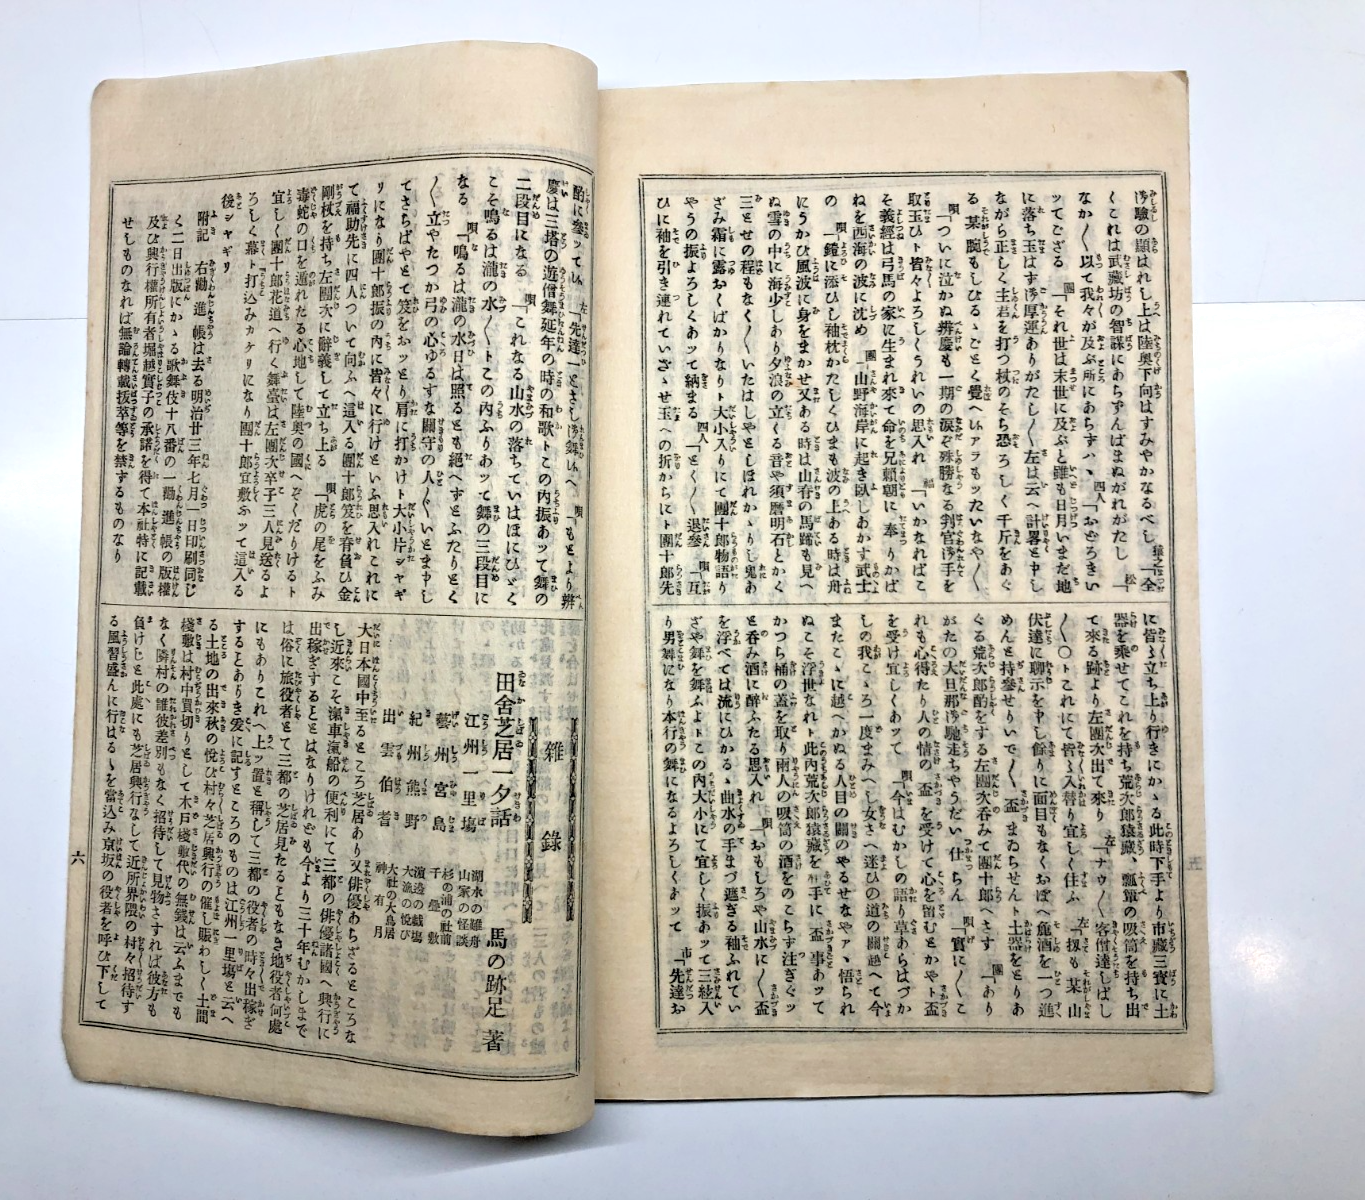 渧驗の顯はれし上は陸奥下向はすみやかなるべし
くこれは武藏坊の智謀にあらずんばまぬがれがたし
なか〳〵以て我々が及ぶ所にあらずハヽ 四人「おどろきい
ッてござる 團「それ世は末世に及ぶと雖も日月いまだ地
に落ち玉はず渧厚運ありがたし〳〵左は云へ計畧と中し
ながら正しく主君を打つ杖のそち恐ろしく千斤をあぐ
る某腕もしびるゝごとく覺へルアラもッたいなや〳〵
唄「ついに泣かぬ辨慶も一期の涙ぞ殊勝なる判官渧手を
取玉ひト皆々よろしくうれいの思入れ 「いかなればこ
そ義經は弓馬の家に生まれ來て命を兄頼朝に奉りかば
ねを西海の波に沈め 團「山野海岸に起き臥しあかす武士
の 「鎧に添ひし袖枕かたしくひまも波の上ある時は舟
にうかひ風波に身をまかせ又ある時は山春の馬蹄も見へ
ぬ雪の中に海少しあり夕浪の立くる音や須磨明石とかく
三とせの程もなく〳〵いたはしやとしほれかゝりし鬼あ
ざみ霜に露おくばかりなりト大小入りにて團十郎物語り
やうの振よろしくあッて納まる 四人「とく〳〵退參 唄「互
ひに袖を引き連れていざゝせ玉への折からにト團十郎先
に皆々立ち上り行きにかゝる此時下手より市藏三寳に土
器を乗せてこれを持ち荒次郎猿藏、瓢箪の吸筒を持ち出
て來る跡より左團次出て來り 左「ナウ〳〵客僧達しばし
〳〵〇トこれにて皆々入替り宜しく住ふ 左「扨も某山
伏達に聊示を中し餘りに面目もなくおぼへ麁酒を一つ進
めんと持參せりいで〳〵盃まゐらせんト土器をとりあ
ぐる荒次郎酌をする左團次呑みて團十郎へさす 團「あり
がたの大旦那渧馳走ちやうだい仕らん 唄「實に〳〵こ
れも心得たり人の情の盃を受けて心を留むとかやト盃
を受け宜しくあッて 唄「今はむかしの語り草あらはづか
しの我こゝろ一度まみへし女さへ迷ひの道の關越へて今
またこゝに越へかぬる人目の關のやるせなやアヽ悟られ
ぬこそ浮世なれト此内荒次郎猿藏を相手に盃事あッて
かつら桶の蓋を取り兩人の吸筒の酒をのこらず注ぎぐッ
と呑み酒に醉ふたる思入れ 唄「おもしろや山水に〳〵盃
を浮べては流にひかるゝ曲水の手まづ遮ぎる袖ふれてい
ざや舞を舞ふよトこの内大小にて宜しく振あッて三絃入
り男舞になり本行の舞になるよろしくあッて 市「先達お
酌に參ッてル 左「先達一とさし渧舞ルへ 「もとより辨
慶は三塔の遊僧舞延年の時の和歌トこの内振あッて舞の
二段目になる 唄「これなる山水の落ちていはほにひゞく
こそ鳴るは瀧の水〳〵トこの内ふりあッて舞の三段目に
なる 「鳴るは瀧の水日は照るとも絕へずとふたりとく
〳〵立やたつか弓の心ゆるすな關守の人〳〵いとま中し
てさらばやとて笈をおッとり肩に打かけト大小片シャギ
リになり團十郎振の内に皆々に行けといふ思入れこれに
て福助先に四人ついて向ふへ這入る團十郎笈を脊負ひ金
剛杖を持ち左團次に辭義して立ち上る 唄「虎の尾をふみ
毒蛇の口を遁れたる心地して陸奥の國へぞくだりけるト
宜しく團十郎花道へ行く舞臺は左團次卒子三人見送るよ
ろしく幕ト打込みカケリになり團十郎宜敷ふッて這入る
後シャギリ
附記 右勸進帳は去る明治廿三年七月一日印刷同じ
く二日出版にかゝる歌舞伎十八番の一勸進帳の版權
及び興行權所有者堀越實子の承諾を得て本社特に記載
せしものなれば無論轉載拔萃等を禁ずるものなり
雜錄
田舍芝居一夕話 馬の跡足 著
江州一里塲 湖水の難舟 山家の怪談
藝州宮島 千疊敷 杉の浦の社前
紀州熊野 渡邊の戯塲 大漁の悦び
出雲伯耆 大社の人鳥居 神有月
大日本國中至るところ芝居あり又俳優あらざるところな
し近來こそ滊車滊船の便利にて三都の俳優諸國へ興行に
出稼ぎするとはなりけれども今より三十年むかしまで
は俗に旅役者とて三都の芝居見たるともなき地役者何處
にもありこれへ上ッ置と稱して三都の役者の時々出稼ぎ
するとありき爰に記すところのものは江州一里塲と云へ
る土地の出來秋の悅び村々芝居興行の催し賑わしく土間
棧敷は村中買切りとして木戸棧敷代の無錢は云ふまでも
なく隣村の誰彼差別もなく招待して見物さすれば彼方も
負けじと此處にも芝居興行なして近所界隈の村々招待す
る風習盛んに行はるゝを當込み京坂の役者を呼び下して
六